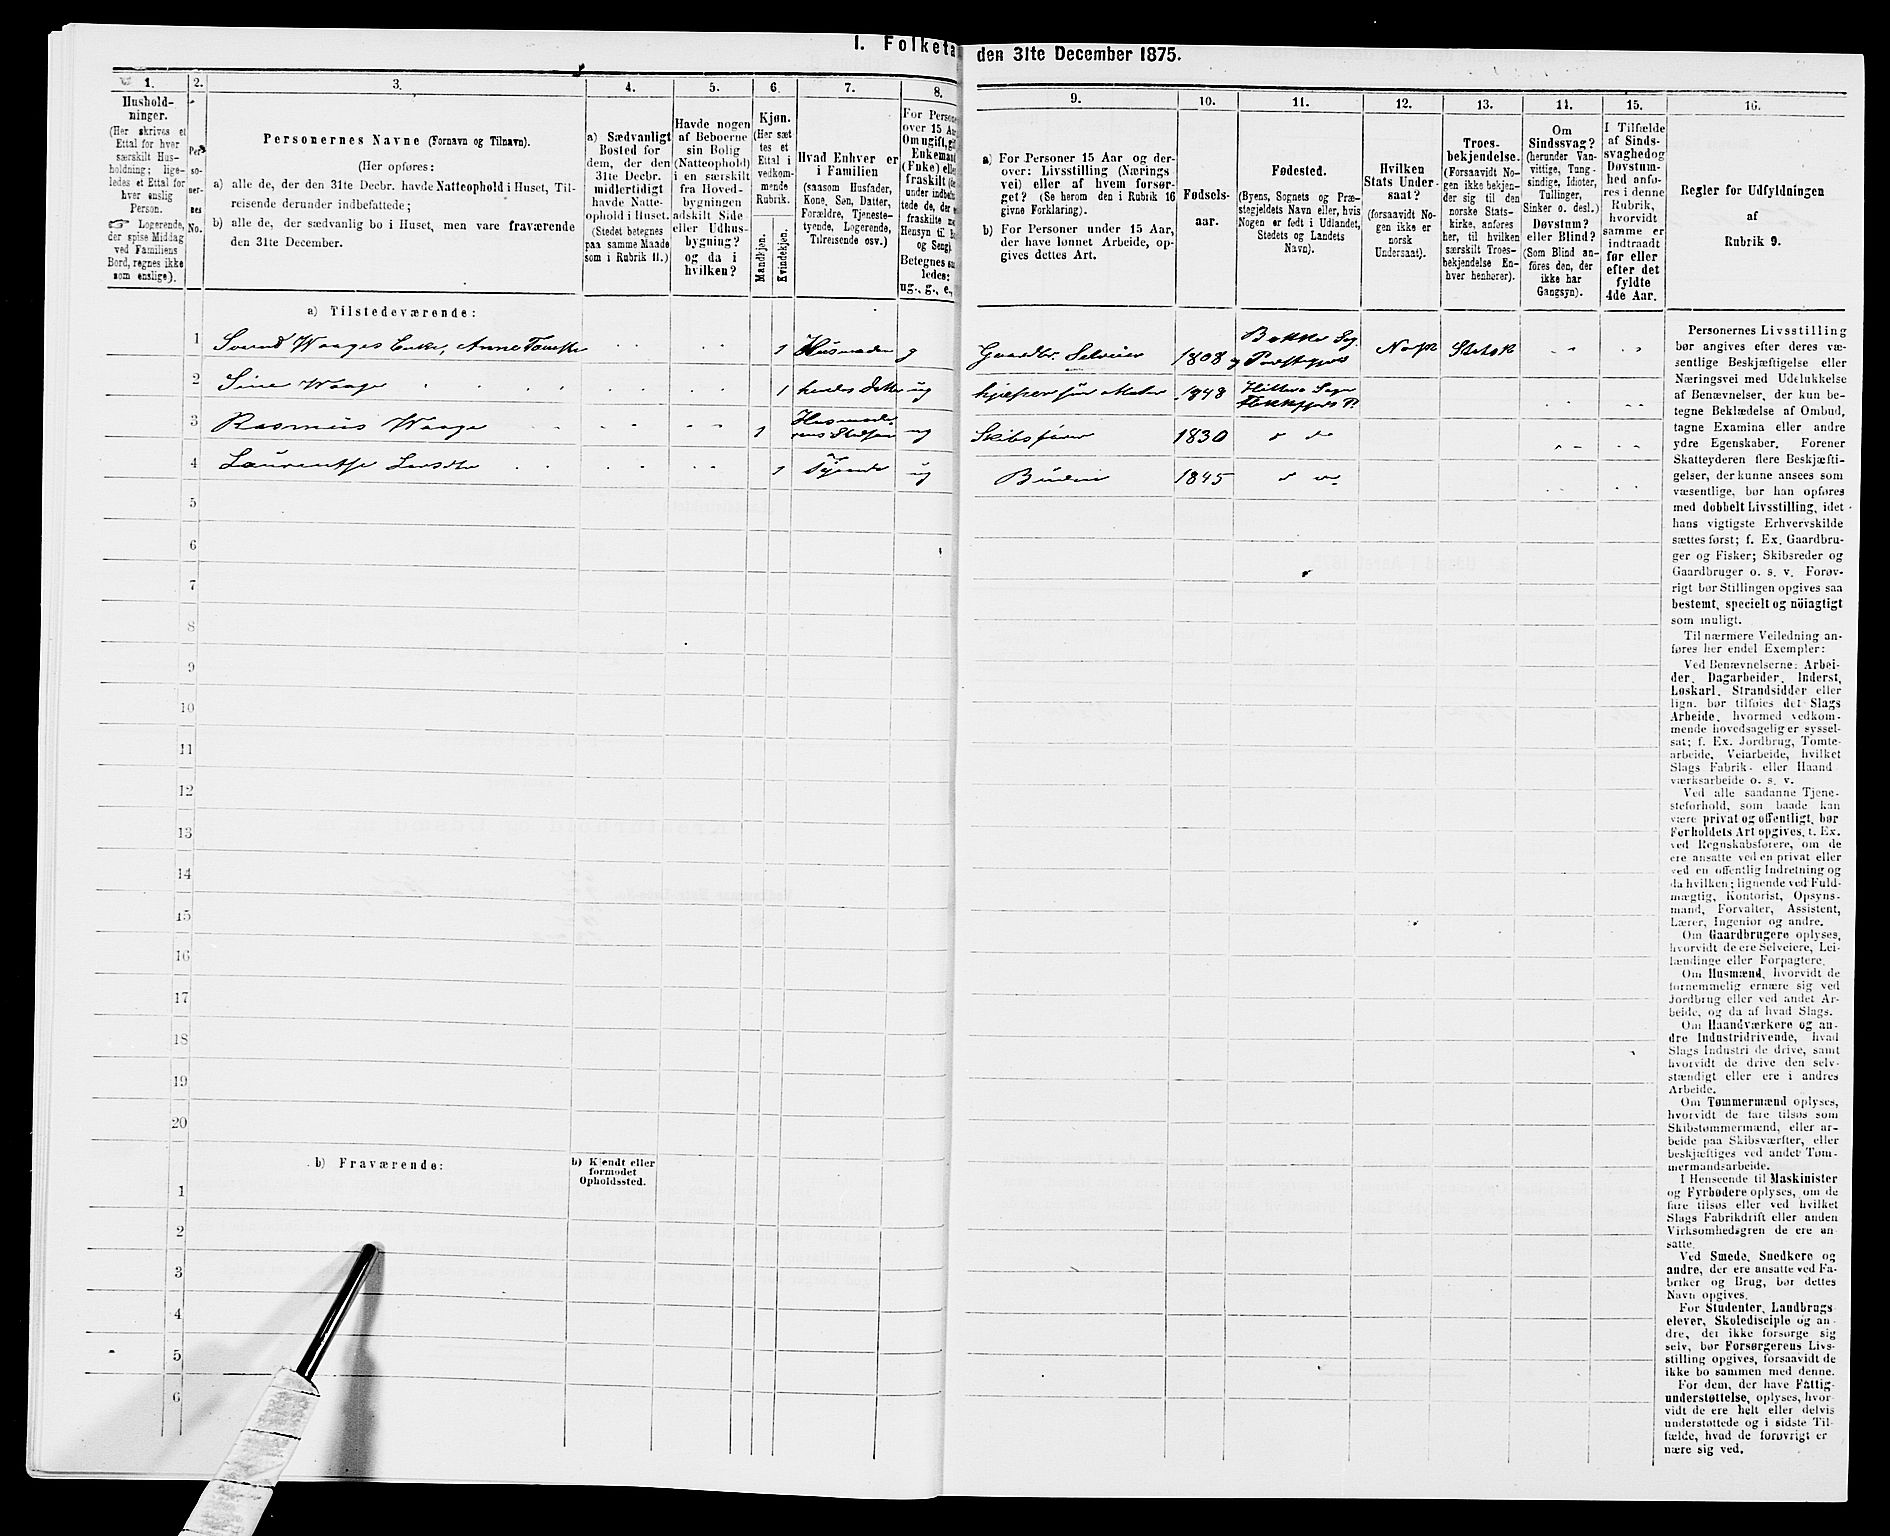 I. Folketa
den 31te December 1875.
1.
Hushold-
ninger.
(Her skrives et
Ettal for hver
særskilt Hus-
holdning; lige-
ledes et Ettal for
hver enslig
Person.
☞ Logerende,
der spise Middag
ved Familiens
Bord, regnes ikke
som enslige).
2.
Per-
so-
ner-
nes
No.
3.
Personernes Navne (Fornavn og Tilnavn).
(Her opføres:
a) alle de, der den 31te Decbr. havde Natteophold i Huset, Til-
reisende derunder indbefattede;
b) alle de, der sædvanlig bo i Huset, men vare fraværende
den 31te December.
4.
a) Sædvanligt
Bosted for
dem, der den
31te Decbr.
midlertidigt
havde Natte-
ophold i Huset.
(Stedet betegnes
paa samme Maade
som i Rubrik 11.)
5.
Havde nogen
af Beboerne
sin Bolig
(Natteophold)
i en særskilt
fra Hoved-
bygningen
adskilt Side
eller Udhus-
bygning?
og da i
hvilken?
6.
Kjøn.
(Her sæt
tes et
Ettal i
vedkom-
mende
Rubrik.
Mandkjøn.
Kvindekjøn.
7.
Hvad Enhver er
i Familien
(saasom Husfader,
Kone, Søn, Datter,
Forældre, Tjeneste-
tyende, Logerende,
Tilreisende osv.)
8.
For Persone
over 15 Aa
Om ugift, gi
Enkemand
(Enke) elle
fraskilt (de
under indbefat
tede de, der e
fraskilte
Hensyn til B
og Seng).
Betegnes saa
ledes:
ug., g., e.,
9.
a) For Personer 15 Aar og der-
over: Livsstilling (Nærings
vei) eller af hvem forsør-
get? (Se herom den i Rubrik 16
givne Forklaring).
b) For Personer under 15 Aar,
der have lønnet Arbeide, op-
gives dettes Art.
10.
Fødsels-
aar.
11.
Fødested.
(Byens, Sognets og Præ-
stegjeldets Navn eller, hvis
Nogen er født i Udlandet,
Stedets og Landets
Navn).
12.
Hvilken
Stats Under-
saat?
(forsaavidt No-
gen ikke er
norsk
Undersaat).
13.
Troes-
bekjendelse.
(Forsaavidt No-
gen ikke bekjen-
der sig til den
norske Stats-
kirke, anføres
her, til hvilken
særskilt Troes-
bekjendelse En-
hver henhører).
14.
Om
Sindssvag?
(herunder Van-
vittige, Tung-
sindige, Idioter,
Tullinger,
Sinker o. desl.)
Døvstum?
eller Blind?
(Som Blind an-
føres den, der
ikke har
Gangsyn).
15.
I Tilfælde
af Sinds-
svaghed og
Døvstum-
hed anfø-
res i denne
Rubrik,
hvorvidt
samme er
indtraadt
før eller
efter det
fyldte
4de Aar.
16.
Regler for Udfyldningen
af
Rubrik 9.
a) Tilstedeværende:
1 Svend Waages Enke, Anne 1 Husmoder g Gaardbr. Selveier 1808 Bakke Sog Norsk Statsk
2 Sine Waage 1 hendes Datter ug hjelper sin Moder 1848 Hitterø Sogn Flekkefjords P.
3 Rasmus Waage 1 Husmode- rens Stedsøn ug Skibsfører 1830 do
4 Laurentse Larsdtr 1 Tyende ug Budeie 1845 do
5
6
7
8
9
10
11
12
13
14
15
16
17
18
19
20
b) Fraværende:
b) Kjendt eller
formodet
Opholdssted.
1
2
3
4
5
6
Personernes Livsstilling
bør angives efter deres væ-
sentlige Beskjæftigelse eller
Næringsvei med Udelukkelse
af Benævnelser, der kun be-
tegne Beklædelse af Ombud,
tagne Examina eller andre
ydre Egenskaber. Forener
Skatteyderen flere Beskjæfti-
gelser, der kunne ansees som
væsentlige, bør han opføres
med dobbelt Livsstilling, idet
hans vigtigste Erhvervskilde
sættes først; f. Ex. Gaardbru-
ger og Fisker; Skibsreder og
Gaardbruger o. s. v. Forøv-
rigt bør Stillingen opgives saa
bestemt, specielt og nöiagtigt
som muligt.
Til nærmere Veiledning an-
føres her endel Exempler:
Ved Benævnelserne: Arbei-
der, Dagarbeider, Inderst,
Løskarl, Strandsidder eller
lign. bør tilføies det Slags
Arbeide, hvormed vedkom-
mende hovedsagelig er syssel-
sat; f. Ex. Jordbrug, Tomte-
arbeide, Veiarbeide, hvilket
Slags Fabrik- eller Haand
værksarbeide o. s. v.
Ved alle saadanne Tjene-
steforhold, som baade kan
være privat og offentligt, bør
Forholdets Art opgives, t. Ex.
ved Regnskabsførere, om de
ere ansatte ved en privat eller
ved en offentlig Indretning og
da hvilken; lignende ved Fuld-
mægtig, Kontorist, Opsyns-
mand, Forvalter, Assistent,
Lærer, Ingeniør og andre.
Om Gaardbrugere oplyses,
hvorvidt de ere Selveiere, Lei-
lændinge eller Forpagtere.
Om Husmænd, hvorvidt de
fornemmelig ernære sig ved
Jordbrug eller ved andet Ar-
beide, og da af hvad Slags.
Om Haandværkere og an-
dre Industridrivende, hvad
Slags Industri de drive, samt
hvorvidt de drive den selv-
stændigt eller ere i andres
Arbeide.
Om Tømmermænd oplyses,
hvorvidt de fare tilsøs som
Skibstømmermænd, eller ar-
beide paa Skibsværfter, eller
beskjæftiges ved andet Tøm-
mermandsarbeide.
I Henseende til Maskinister
og Fyrbødere oplyses, om de
fare tilsøs eller ved hvilket
Slags Fabrikdrift eller anden
Virksomhedsgren de ere an-
satte.
Ved Smede, Snedkere og
andre, der ere ansatte ved Fa-
briker og Brug, bør dettes
Navn opgives.
For Studenter, Landbrugs
elever, Skoledisciple og an-
dre, der ikke forsørge sig
selv, bør Forsørgerens Livs-
stilling opgives, forsaavidt de
ikke bo sammen med denne.
For dem, der have Fattig-
understøttelse, oplyses, hvor-
vidt de ere helt eller delvis
understøttede og i sidste Til-
fælde, hvad de forøvrigt er
nære sig ved.